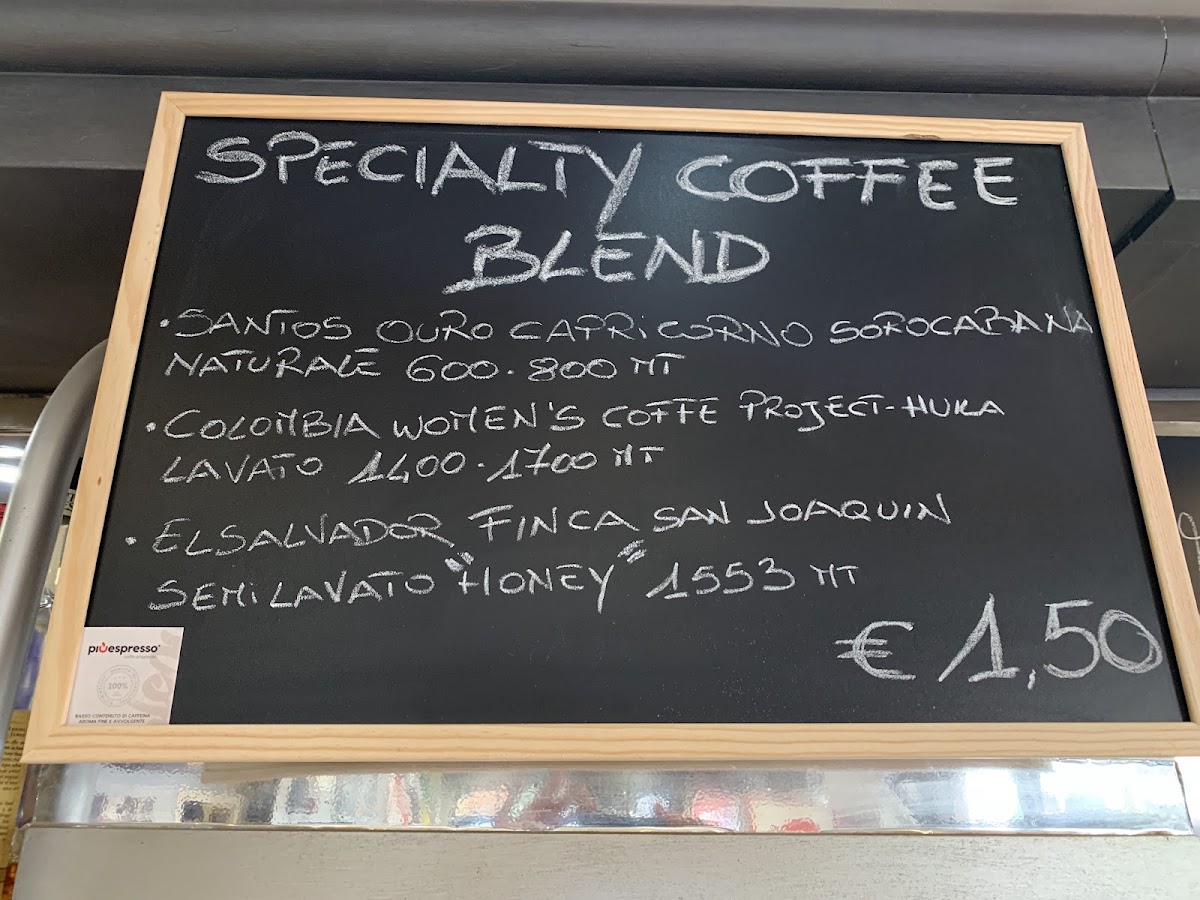 SPECIALTY COFFEE
BLEND
• SANTOS OURO CAPRICORNO SOROCABANA
NATURALE 600-800 MT
• COLOMBIA WOMEN'S COFFE PROJECT-HUILA
LAVATO 1400-1700 MT
• EL SALVADOR FINCA SAN JOAQUIN
SEMILAVATO "HONEY" 1553 MT
€ 1,50
piùespresso
100%
BASSO CONTENUTO DI CAFFEINA
AROMA FINE E AVVOLGENTE